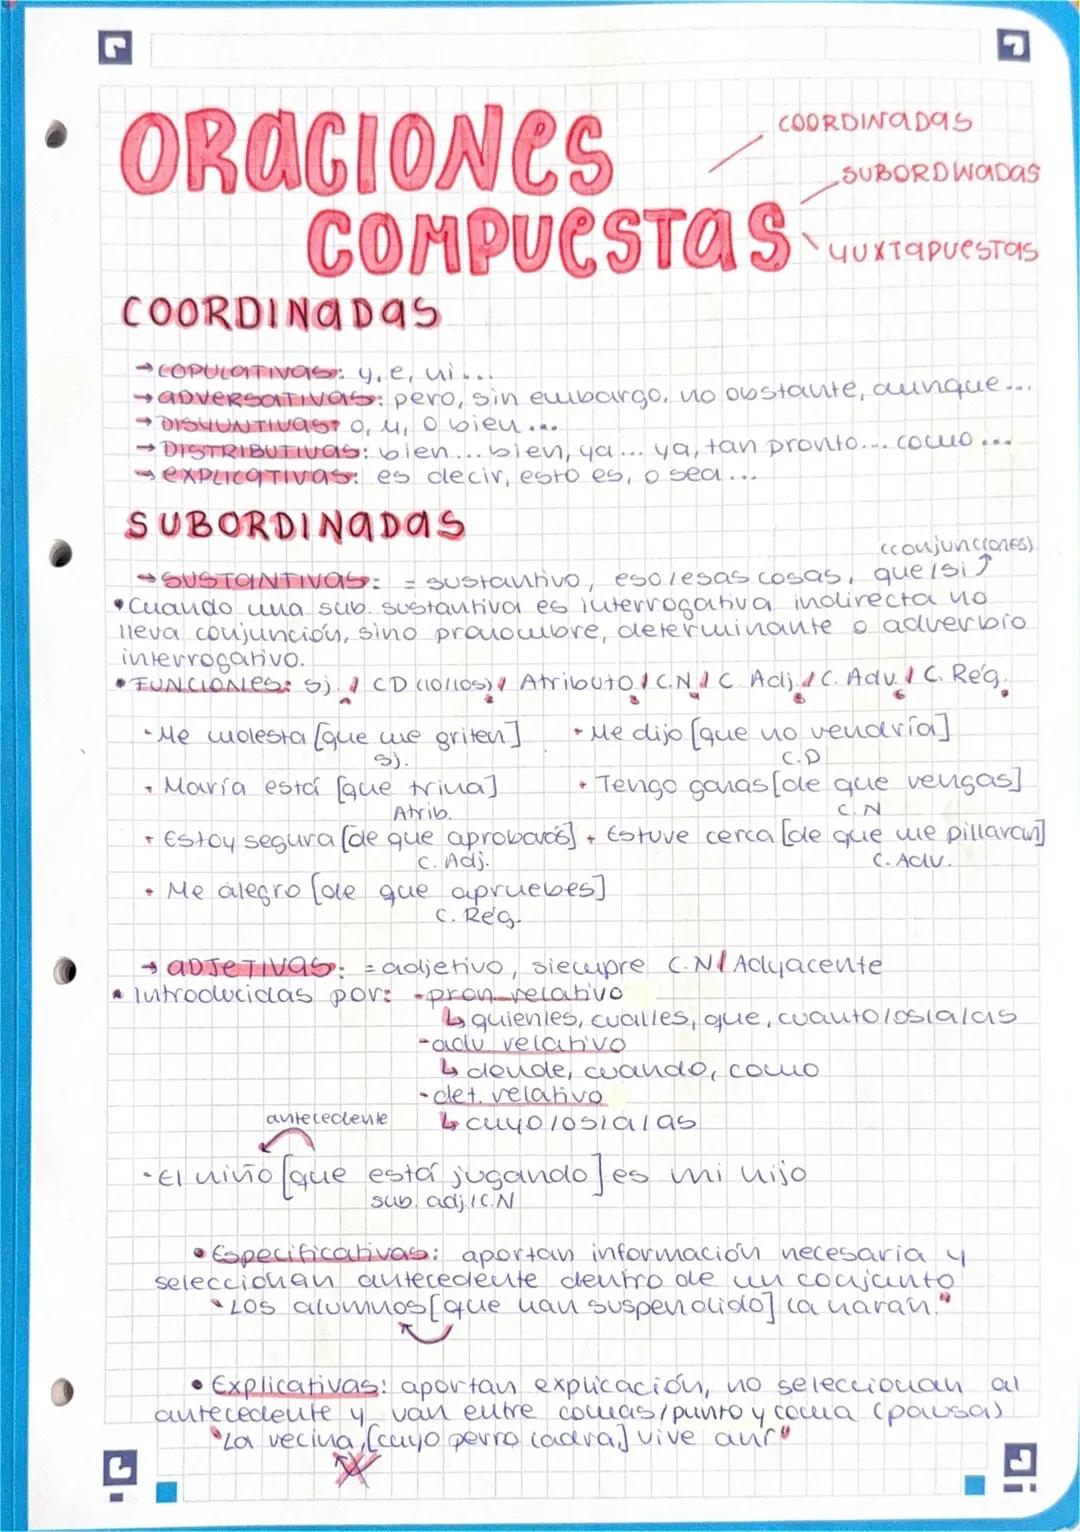 ORACIONES
COMPUESTAS
COORDINADAS
SUBORDINADAS
YUXTAPUESTAS
COORDINADAS
→COPULATIVAS: y, e, ni...
→ADVERSATIVAS: pero, sin embargo, no obstante, aunque...
→DISYUNTIVAS: o, u, o bien...
→DISTRIBUTIVAS: bien... bien, ya... ya, tan pronto... como...
→EXPLICATIVAS: es decir, esto es, o sea...
SUBORDINADAS
(conjunciones)
→SUSTANTIVAS: = sustantivo, eso/esas cosas, que/si
•Cuando una sub. sustantiva es interrogativa indirecta no
lleva conjunción, sino pronombre, determinante o adverbio
interrogativo.
•FUNCIONES: Sj. / CD (lo/los) / Atributo / C.N / C. Adj. / C. Adv. / C. Rég.
1 2 3 4 5 6 7
· Me molesta [que me griten] · Me dijo [que no vendría]
Sj. C.D
· María está [que trina] · Tengo ganas [de que vengas]
Atrib. C.N
· Estoy segura [de que aprobarás] · Estuve cerca [de que me pillaran]
C. Adj. C. Adv.
· Me alegro [de que apruebes]
C. Rég.
→ ADJETIVAS: = adjetivo, siempre C.N/Adyacente
• Introducidas por: -pron relativo
↳ quien/es, cual/es, que, cuanto/os/a/as
-adv relativo
↳ donde, cuando, como
-det. relativo
↳ cuyo/os/a/as
antecedente
·El niño [que está jugando] es mi hijo
sub. adj./C.N
• Especificativas: aportan información necesaria y
seleccionan antecedente dentro de un conjunto
"Los alumnos [que han suspendido] la harán."
• Explicativas: aportan explicación, no seleccionan al
antecedente y van entre comas/punto y coma (pausa)
"La vecina, [cuyo perro ladra,] vive aquí"